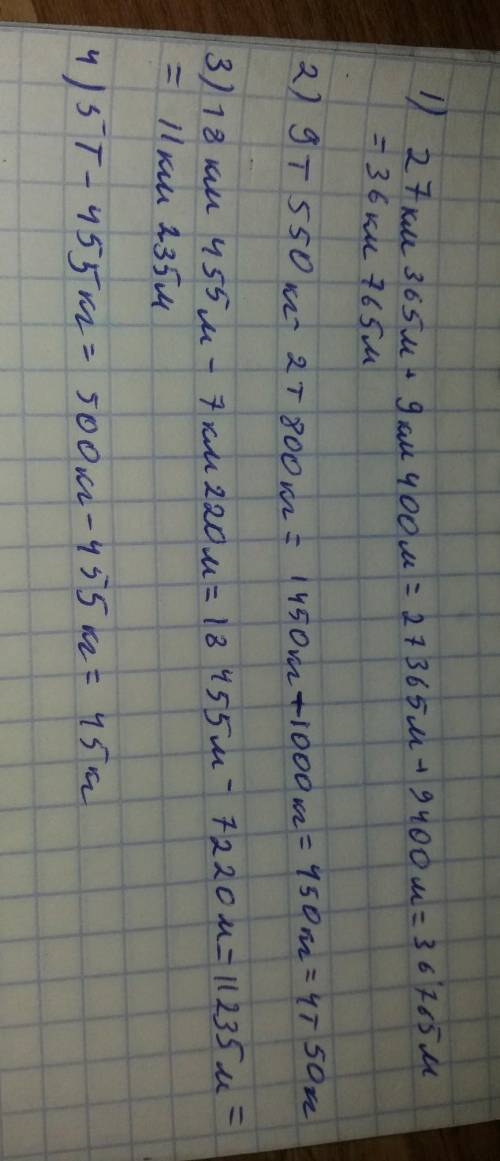 1) 27 км 365 м + 9 км 400 м = 27365 м + 9400 м = 36765 м
= 36 км 765 м
2) 9 т 550 кг - 2 т 800 кг = 1450 кг + 1000 кг = 450 кг = 4т 50 кг
3) 18 км 455 м - 7 км 220 м = 18 455 м - 7220 м = 11235 м =
= 11 км 235 м
4) 5 т - 455 кг = 500 кг - 455 кг = 45 кг